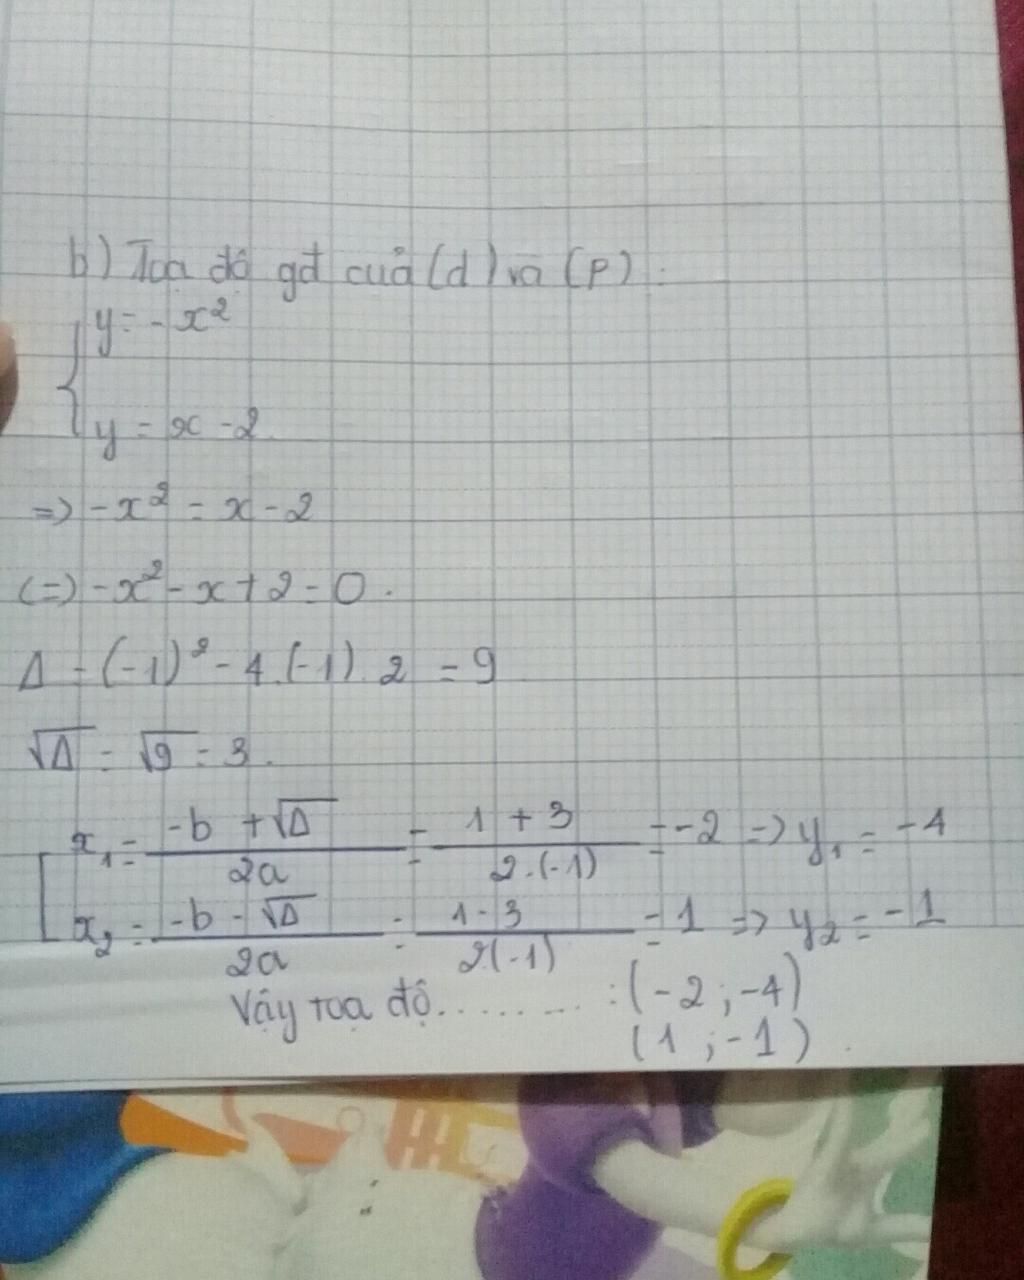 b) Toạ độ gđ của (d) và (P).
y = -x²
y = x - 2
=> -x² = x - 2
(=) -x² - x + 2 = 0.
Δ = (-1)² - 4.(-1).2 = 9
√Δ = √9 = 3.
x₁ = (-b + √Δ)/2a = (1 + 3)/(2.(-1)) = -2 => y₁ = -4
x₂ = (-b - √Δ)/2a = (1 - 3)/(2(-1)) = 1 => y₂ = -1
Vậy toạ độ.........:(-2 ; -4)
(1 ; -1).